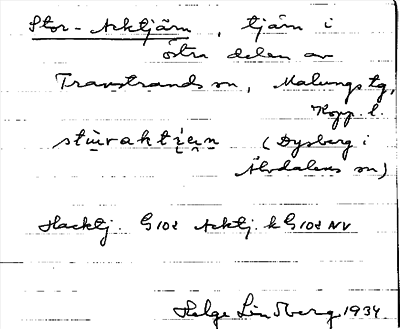 Stor-Acktjärn, tjärn i
östra delen av
Transtrands sn, Malungs tg,
Kopp. l.
stùvaktiɛṇ (Dysberg i
Älvdalens sn)
Hacktj. G102 Acktj. k G102 NV
Helge Lindberg 1934